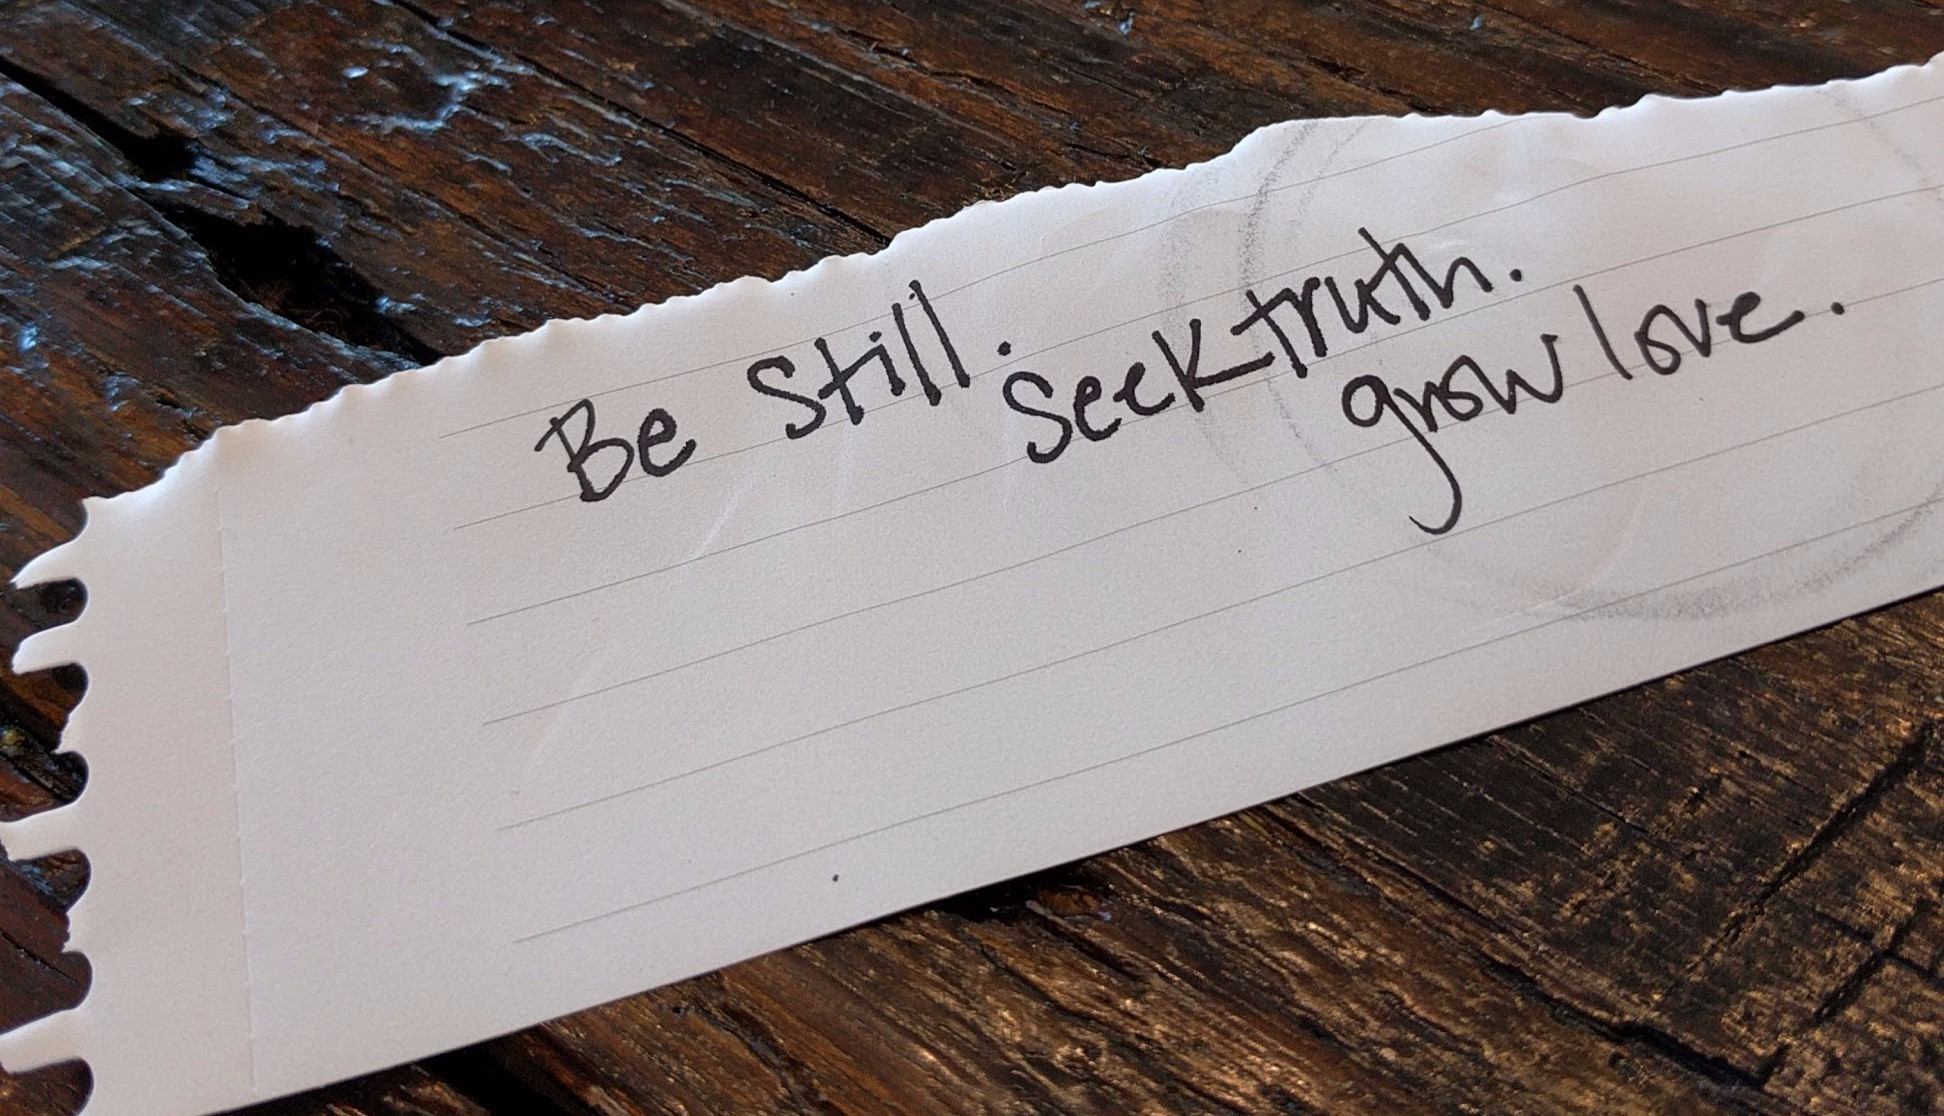 Be Still. Seek truth.
grow love.